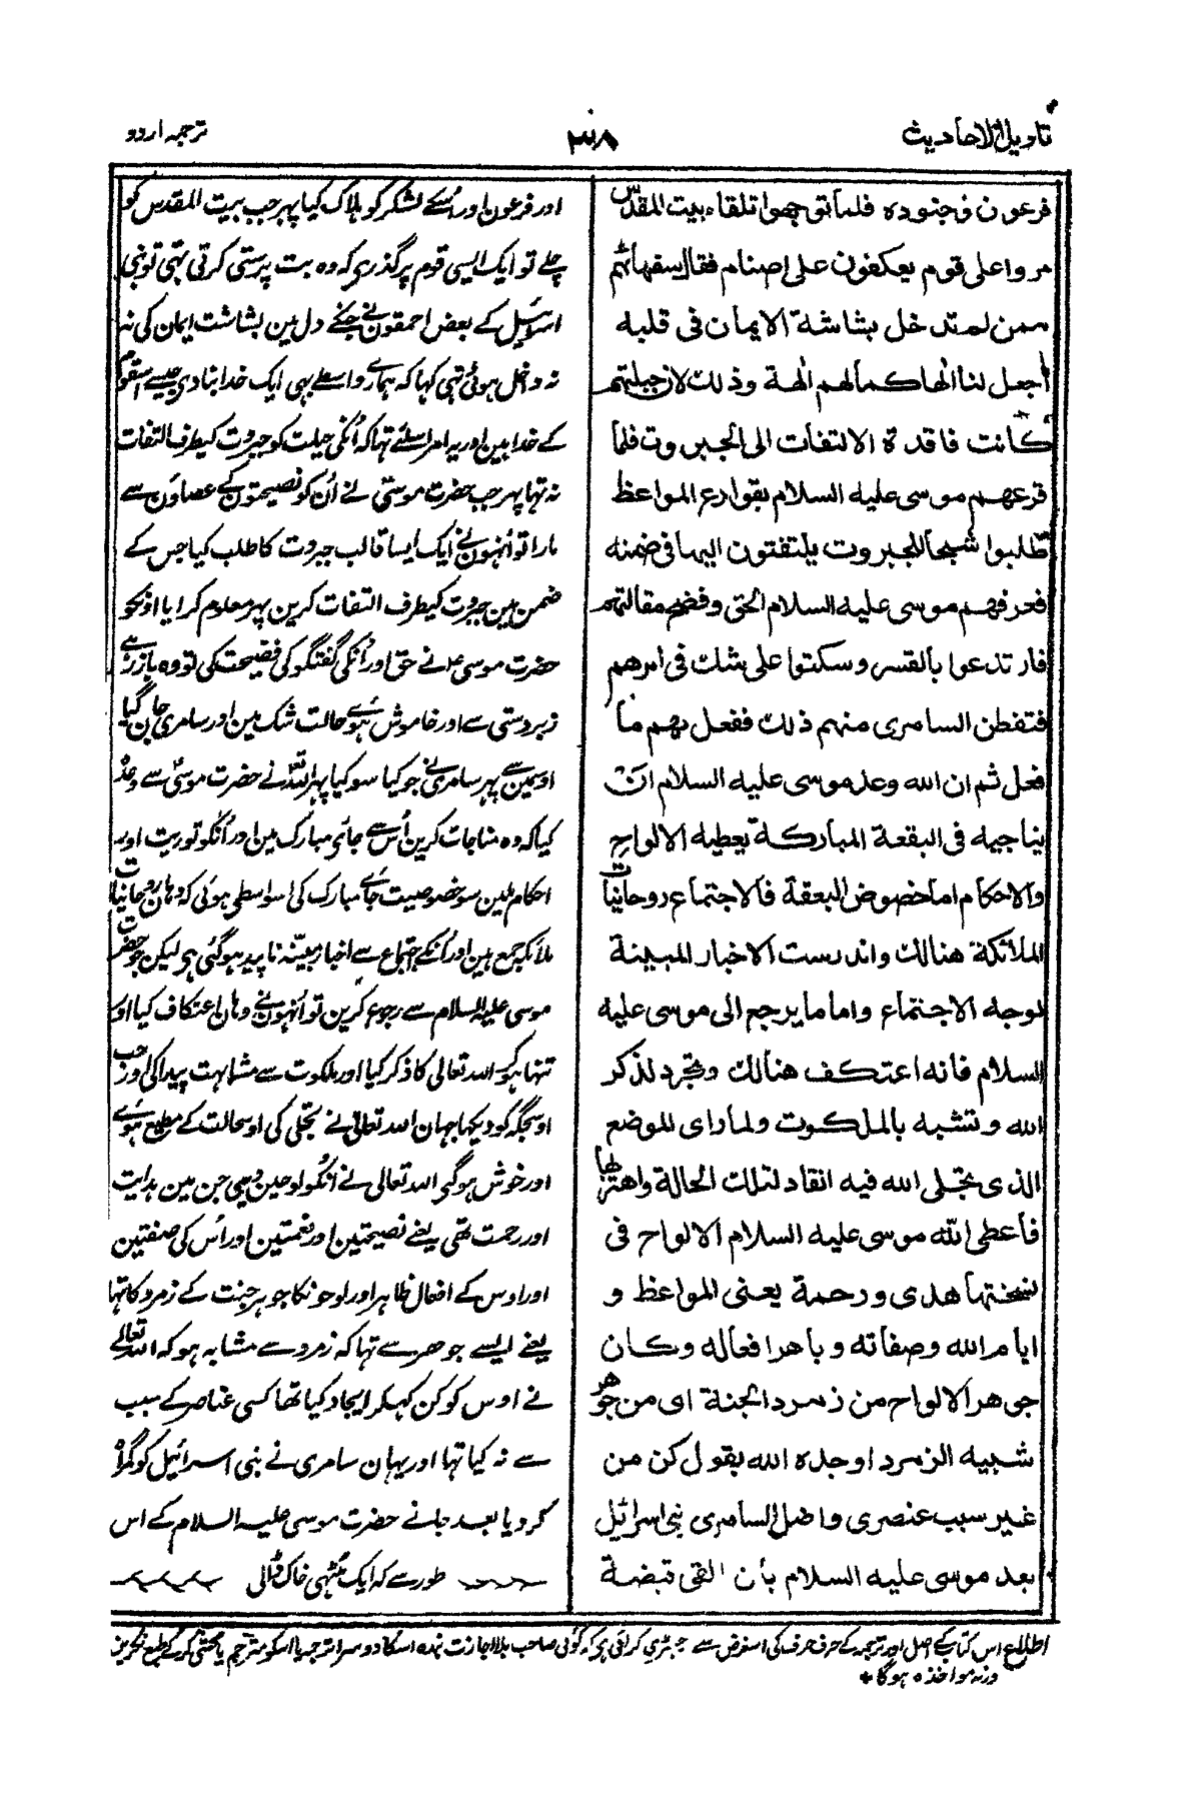 تاویل الاحادیث
۳۸
ترجمہ اردو
فرعون وجنوده فلما توجهوا تلقاء بيت المقدس
مروا على قوم يعكفون على اصنام فقال سفهائهم
ممن لم تدخل بشاشة الايمان فى قلبه
اجعل لنا الٰها كما لهم الٰهة وذلك لان جبلتهم
كانت فاقدة الالتفات الى الجبروت فلما
قرعهم موسى عليه السلام بقوارع المواعظ
طلبوا شبحا للجبروت يلتفتون اليها فى ضمنه
فعرفهم موسى عليه السلام الحق وفضح مقالتهم
فارتدعوا بالقسر وسكتوا على شك فى امرهم
فتفطن السامرى منهم ذلك ففعل بهم ما
فعل ثم ان الله وعد موسى عليه السلام ان
يناجيه فى البقعة المباركة يعطيه الالواح
والاحكام اما خصوص البعقة فالاجتماع روحانيات
الملائكة هنالك واندرست الاخبار المبينة
لوجه الاجتماع واما ما يرجع الى موسى عليه
السلام فانه اعتكف هنالك وتجرد لذكر
الله وتشبه بالملكوت ولما راى للموضع
الذى تجلى الله فيه انقاد لتلك الحالة واهتز لها
فاعطى الله موسى عليه السلام الالواح فى
نسختها هدى ورحمة يعنى المواعظ و
ايام الله وصفاته وباهر افعاله وكان
جوهر الالواح من زمرد الجنة اى من جوهر
شبيه الزمرد اوجده الله بقول كن من
غير سبب عنصرى واضل السامرى بنى اسرائيل
بعد موسى عليه السلام بان القى قبضة
اور فرعون اور اُسکے لشکر کو ہلاک کیا پہر جب بیت المقدس کو
چلے تو ایک ایسی قوم پر گذرے کہ وہ بت پرستی کرتی تہی تو بنی
اسرائیل کے بعض احمقون نے جنکے دل مین بشاشت ایمان کی نہ
نہ داخل ہوئی تہی کہا کہ ہمارے واسطے بہی ایک خدا بنا دی جیسے اس قوم
کے خدا ہین اور یہ امر اسلئے تہا کہ اُنکی جبلت کو جبروت کیطرف التفات
نہ تہا پہر جب حضرت موسیٰ نے اُن کو نصیحتون کے عصاؤن سے
مارا تو اُنہون نے ایک ایسا قالب جبروت کا طلب کیا جس کے
ضمن مین جبروت کیطرف التفات کرین پہر معلوم کرایا اونکو
حضرت موسیٰؑ نے حق اور اُنکی گفتگو کی فضیحت کی تو وہ باز رہے
زبردستی سے اور خاموش ہوئے حالت شک مین اور سامری جان گیا
اومین سے پہر سامری نے جو کیا سو کیا پہر اللہ نے حضرت موسیٰؑ سے وعدہ
کیا کہ وہ مناجات کرین اُس سے جائے مبارک مین اور اُنکو توریت اور
احکام ملین سو خصوصیت جائے مبارک کی اسواسطی ہوئی کہ وہان روحانیات
ملائکہ جمع ہین اور اُنکے اجتماع سے اخبار مبیّنہ ناپید ہوگئی ہی لیکن جو حضرت
موسیٰ علیہ السلام سے رجوع کرین تو اُنہون نے وہان اعتکاف کیا اور
تنہا ہوکر اللہ تعالی کا ذکر کیا اور ملکوت سے مشابہت پیدا کی اور جب
اوسجگہ کو دیکہا جہان اللہ تعالی نے تجلی کی اوسحالت کے مطیع ہوئے
اور خوش ہوگئے اللہ تعالی نے اُنکو لوحین دیں جن مین ہدایت
اور رحمت تھی یعنے نصیحتین اور نعمتین اور اُس کی صفتین
اور اوس کے افعال ظاہر اور لوحونکا جوہر جنت کے زمرد کا تہا
یعنے ایسے جوھر سے تہا کہ زمرد سے مشابہ ہو کہ اللہ تعالے
نے اوس کو کن کہکر ایجاد کیا تھا کسی عناصر کے سبب
سے نہ کیا تہا اور یہان سامری نے بنی اسرائیل کو گمراہ
کر دیا بعد جانے حضرت موسی علیہ السلام کے اس
طور سے کہ ایک مُٹہی خاک ڈالی
اطلاع اس کتاب کے اصل اور ترجمہ کے حرف حرف کی اسغرض سے رجسٹری کرائی ہی کہ کوئی صاحب بلا اجازت بندہ اسکا دوسرا ترجمہ یا اسکو مترجم یا محشی کرکے طبع نکرین
ورنہ مواخذہ ہوگا *